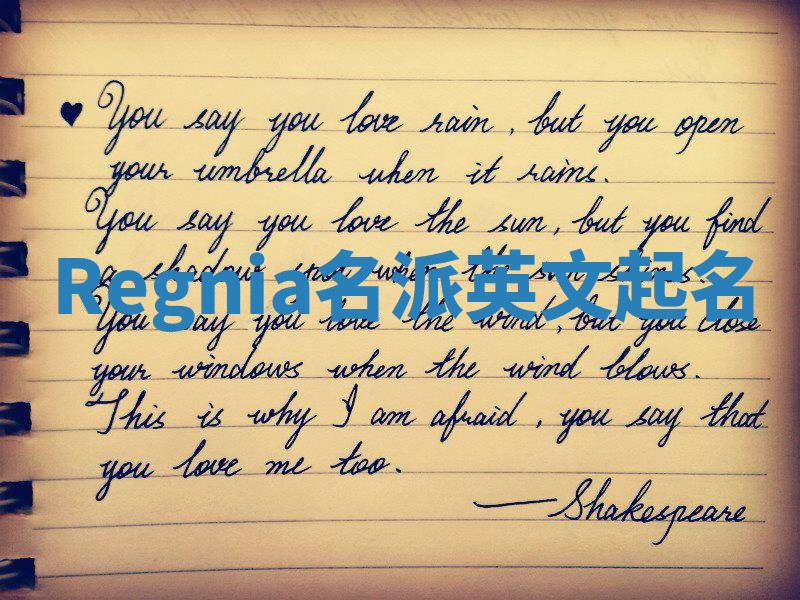 ♥ You say you love rain, but you open
your umbrella when it rains.
You say you love the sun, but you find
a shadow spot when the sun shines.
Regnia名派英文起名
You say you love the wind, but you close
your windows when the wind blows.
This is why I am afraid, you say that
you love me too.
—Shakespeare